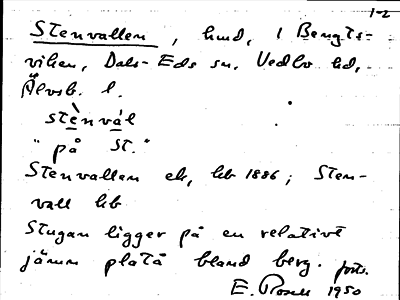 1-2
Stenvallen, hmd, 1 Bengts-
viken, Dals-Eds sn. Vedbo hd,
Älvsb. l.
stènvál
"på St."
Stenvallen ek, hb 1886; Sten-
vall hb
Stugan ligger på en relativt
jämn platå bland berg. forts.
E. Rosell 1950